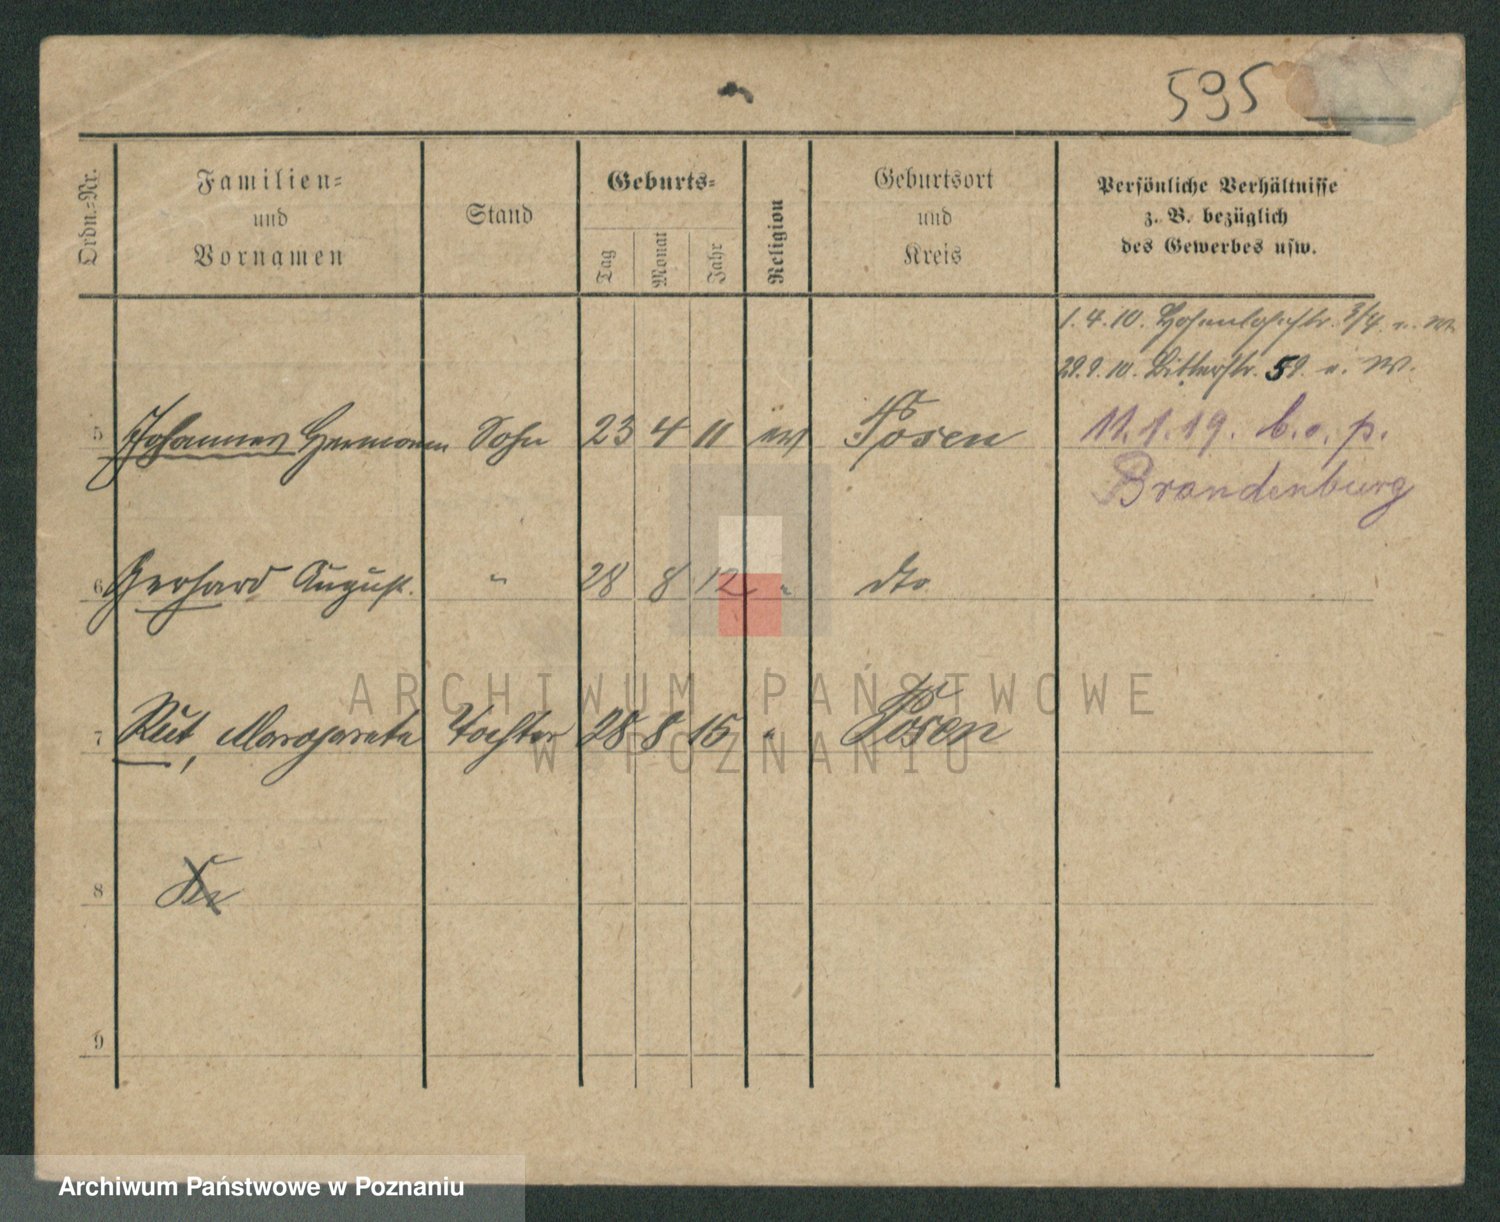 595
Ordn.-Nr.
Familien-
und
Vornamen
Stand
Geburts-
Tag
Monat
Jahr
Religion
Geburtsort
und
Kreis
Persönliche Verhältnisse
z. B. bezüglich
des Gewerbes usw.
1.4.10. Hohenlohestr. 3/4
29.9.10. Ritterstr. 59
5 Johannes Hermann Sohn 23 4 11 ev Posen 11.1.19. b. o. p.
Brandenburg
6 Gerhard August. " 28 8 12 " dto.
7 Rut, Margarete Tochter 28 8 15 " Posen
8
9
ARCHIWUM PAŃSTWOWE
W POZNANIU
Archiwum Państwowe w Poznaniu